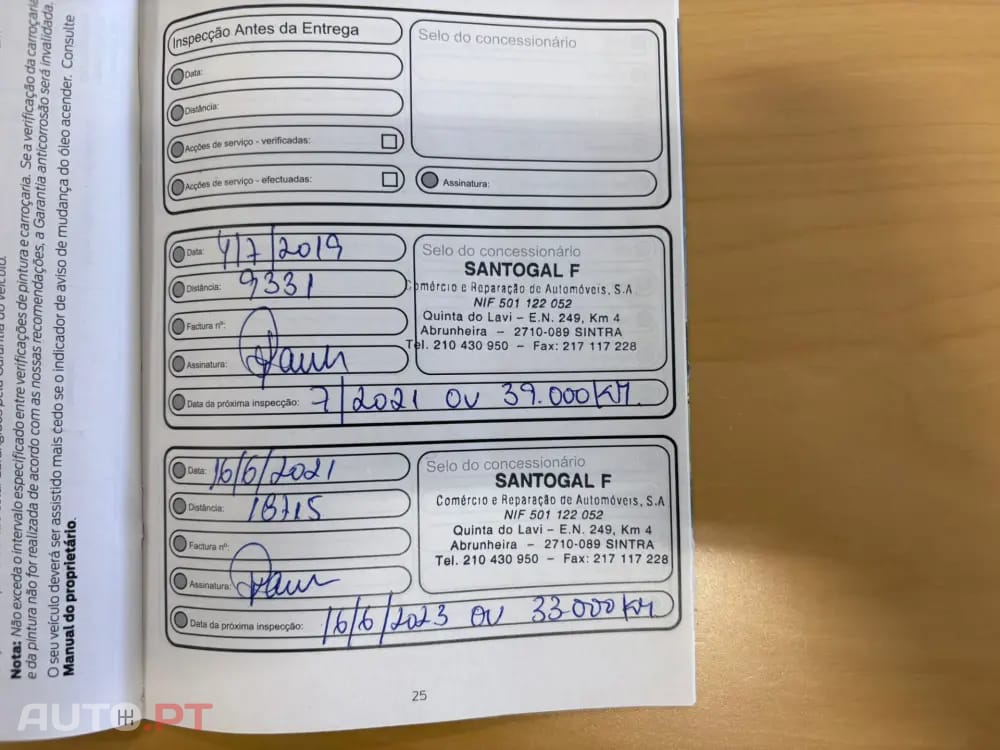 Nota: Não exceda o intervalo especificado entre verificações de pintura e carroçaria. Se a verificação da carroçaria
e da pintura não for realizada de acordo com as nossas recomendações, a Garantia anticorrosão será invalidada.
O seu veículo deverá ser assistido mais cedo se o indicador de aviso de mudança do óleo acender. Consulte
Manual do proprietário.
Inspecção Antes da Entrega
Data:
Distância:
Acções de serviço - verificadas:
Acções de serviço - efectuadas:
Selo do concessionário
Assinatura:
Data: 4/7/2019
Distância: 9331
Factura nº:
Assinatura:
Selo do concessionário
SANTOGAL F
Comércio e Reparação de Automóveis, S.A
NIF 501 122 052
Quinta do Lavi – E.N. 249, Km 4
Abrunheira – 2710-089 SINTRA
Tel. 210 430 950 – Fax: 217 117 228
Data da próxima inspecção: 7/2021 OU 39.000 KM.
Data: 16/6/2021
Distância: 18715
Factura nº:
Assinatura:
Selo do concessionário
SANTOGAL F
Comércio e Reparação de Automóveis, S.A
NIF 501 122 052
Quinta do Lavi – E.N. 249, Km 4
Abrunheira – 2710-089 SINTRA
Tel. 210 430 950 – Fax: 217 117 228
Data da próxima inspecção: 16/6/2023 OU 33.000 KM.
25
AUTO.PT